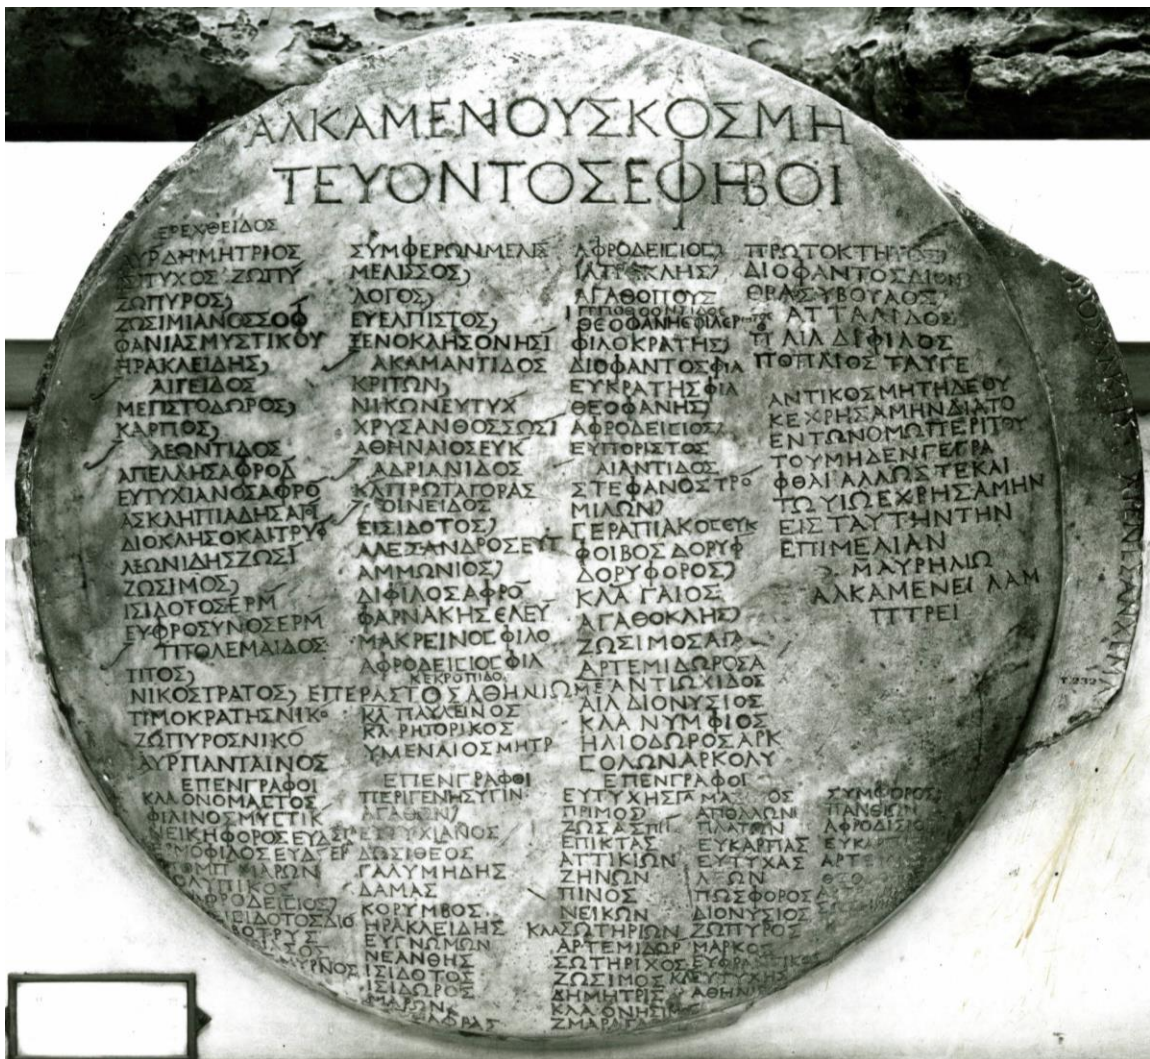 ΑΛΚΑΜΕΝΟΥΣΚΟΣΜΗ
ΤΕΥΟΝΤΟΣΕΦΗΒΟΙ
ΕΡΕΧΘΕΙΔΟΣ
ΑΥΡΔΗΜΗΤΡΙΟΣ
ΕΥΤΥΧΟΣ ΖΩΠΥ
ΖΩΠΥΡΟΣ)
ΖΩΣΙΜΙΑΝΟΣΣΟΦ
ΦΑΝΙΑΣΜΥΣΤΙΚΟΥ
ΗΡΑΚΛΕΙΔΗΣ)
ΑΙΓΕΙΔΟΣ
ΜΕΓΙΣΤΟΔΩΡΟΣ)
ΚΑΡΠΟΣ)
ΛΕΩΝΤΙΔΟΣ
ΑΠΕΛΛΗΣΑΦΡΟΔ
ΕΥΤΥΧΙΑΝΟΣΑΦΡΟ
ΑΣΚΛΗΠΙΑΔΗΣΑΦΡ
ΔΙΟΚΛΗΣΟΚΑΙΤΡΥΦ
ΛΕΩΝΙΔΗΣΖΩΣΙ
ΖΩΣΙΜΟΣ)
ΙΣΙΔΟΤΟΣΕΡΜ
ΕΥΦΡΟΣΥΝΟΣΕΡΜ
ΠΤΟΛΕΜΑΙΔΟΣ
ΤΙΤΟΣ)
ΝΙΚΟΣΤΡΑΤΟΣ)
ΤΙΜΟΚΡΑΤΗΣΝΙΚΟ
ΖΩΠΥΡΟΣΝΙΚΟ
ΑΥΡΠΑΝΤΑΙΝΟΣ
ΕΠΕΝΓΡΑΦΟΙ
ΚΛΑΟΝΟΜΑΣΤΟΣ
ΦΙΛΙΝΟΣΜΥΣΤΙΚ
ΝΕΙΚΗΦΟΡΟΣΕΥΔΓΡ
ΕΡΜΟΦΙΛΟΣΕΥΔΓΕΡ
ΠΟΜΠ ΜΑΡΩΝ
ΟΛΥΠΙΚΟΣ
ΑΦΡΟΔΕΙΣΙΟΣ)
ΕΙΣΙΔΟΤΟΣΔΙΟ
ΒΟΤΡΥΣ
ΣΥΜΦΕΡΩΝΜΕΛΙΣ
ΜΕΛΙΣΣΟΣ)
ΛΟΓΟΣ)
ΕΥΕΛΠΙΣΤΟΣ)
ΞΕΝΟΚΛΗΣΟΝΗΣΙ
ΑΚΑΜΑΝΤΙΔΟΣ
ΚΡΙΤΩΝ)
ΝΙΚΩΝΕΥΤΥΧ
ΧΡΥΣΑΝΘΟΣΣΩΣΙ
ΑΘΗΝΑΙΟΣΕΥΚ
ΑΔΡΙΑΝΙΔΟΣ
ΚΛΠΡΩΤΑΓΟΡΑΣ
ΟΙΝΕΙΔΟΣ
ΕΙΣΙΔΟΤΟΣ)
ΑΛΕΞΑΝΔΡΟΣΕΥΤ
ΑΜΜΩΝΙΟΣ)
ΔΙΦΙΛΟΣΑΦΡΟ
ΦΑΡΝΑΚΗΣΕΛΕΥ
ΜΑΚΡΕΙΝΟΣΦΙΛΟ
ΑΦΡΟΔΕΙΣΙΟΣΦΙΛ
ΚΕΚΡΟΠΙΔΟ
ΕΠΕΡΑΣΤΟΣΑΘΗΝΙΩΜΕ
ΚΛ ΠΑΥΛΕΙΝΟΣ
ΚΛ ΡΗΤΟΡΙΚΟΣ
ΥΜΕΝΑΙΟΣΜΗΤΡ
ΕΠΕΝΓΡΑΦΟΙ
ΠΕΡΙΓΕΝΗΣΥΓΙΝ
ΑΓΑΘΩΝ)
ΕΥΤΥΧΙΑΝΟΣ
ΔΩΣΙΘΕΟΣ
ΓΑΛΥΜΗΔΗΣ
ΔΑΜΑΣ
ΚΟΡΥΜΒΟΣ
ΗΡΑΚΛΕΙΔΗΣ
ΕΥΓΝΩΜΩΝ
ΝΕΑΝΘΗΣ
ΙΣΙΔΟΤΟΣ
ΙΣΙΔΩΡΟΣ
ΜΑΡΩΝ
ΑΦΡΟΔΕΙΣΙΟΣ)
ΙΑΤΡΟΚΛΗΣ)
ΑΓΑΘΟΠΟΥΣ
ΙΠΠΟΘΟΩΝΤΙΔΟΣ
ΘΕΟΦΑΝΗΣΦΙΛΕΡΩΤΟΣ
ΦΙΛΟΚΡΑΤΗΣ)
ΔΙΟΦΑΝΤΟΣΦΙΛ
ΕΥΚΡΑΤΗΣΦΙΛ
ΘΕΟΦΑΝΗΣ)
ΑΦΡΟΔΕΙΣΙΟΣ)
ΕΥΠΟΡΙΣΤΟΣ
ΑΙΑΝΤΙΔΟΣ
ΣΤΕΦΑΝΟΣΤΡΟ
ΜΙΛΩΝ)
ΣΕΡΑΠΙΑΚΟΣΕΥΚ
ΦΟΙΒΟΣ ΔΟΡΥΦ
ΔΟΡΥΦΟΡΟΣ)
ΚΛΑ ΓΑΙΟΣ
ΑΓΑΘΟΚΛΗΣ)
ΖΩΣΙΜΟΣΑΓΑ
ΑΡΤΕΜΙΔΩΡΟΣΑ
ΑΝΤΙΩΧΙΔΟΣ
ΑΙΛ ΔΙΟΝΥΣΙΟΣ
ΚΛΑ ΝΥΜΦΙΟΣ
ΗΛΙΟΔΩΡΟΣΑΡΚ
ΣΟΛΩΝΑΡΚΟΛΥ
ΕΠΕΝΓΡΑΦΟΙ
ΕΥΤΥΧΗΣΓΑ
ΠΡΙΜΟΣ)
ΖΩΣΑΣ
ΕΠΙΚΤΑΣ
ΑΤΤΙΚΙΩΝ
ΖΗΝΩΝ
ΠΙΝΟΣ
ΝΕΙΚΩΝ
ΚΛΑΣΩΤΗΡΙΩΝ
ΑΡΤΕΜΙΔΩΡ
ΣΩΤΗΡΙΧΟΣ
ΖΩΣΙΜΟΣ
ΔΗΜΗΤΡΙΣ
ΚΛΑ ΟΝΗΣΙΜ
ΖΜΑΡΑΓΔ
ΑΠΟΛΛΩΝΙ
ΠΛΑΤΩΝ
ΕΥΚΑΡΠΑΣ
ΕΥΤΥΧΑΣ
ΛΕΩΝ
ΠΩΣΦΟΡΟΣ
ΔΙΟΝΥΣΙΟΣ
ΖΩΠΥΡΟΣ
ΜΑΡΚΟΣ
ΕΥΦΡΑΣΤΙΚΟΣ
ΚΛΕΥΤΥΧΗΣ
ΣΥΜΦΟΡΟΣ)
ΠΑΝΘΕΙΩΝ
ΑΦΡΟΔΙΣΙΟΣ
ΕΥΚΑΡΠ
ΑΡΤΕΜ
ΠΡΩΤΟΚΤΗΤΟΣ)
ΔΙΟΦΑΝΤΟΣΔΙΟΝ
ΘΡΑΣΥΒΟΥΛΟΣ)
ΑΤΤΑΛΙΔΟΣ
ΤΙ ΑΙΛ ΔΙΦΙΛΟΣ
ΠΟΠΛΙΟΣ ΤΑΥΓΕ
ΑΝΤΙΚΟΣΜΗΤΗΔΕΟΥ
ΚΕΧΡΗΣΑΜΗΝΔΙΑΤΟ
ΕΝΤΩΝΟΜΩΠΕΡΙΤΟΥ
ΤΟΥΜΗΔΕΝΓΕΓΡΑ
ΦΘΑΙΑΛΛΩΣΤΕΚΑΙ
ΤΩΥΙΩΕΧΡΗΣΑΜΗΝ
ΕΙΣΤΑΥΤΗΝΤΗΝ
ΕΠΙΜΕΛΙΑΝ
ΜΑΥΡΗΛΙΩ
ΑΛΚΑΜΕΝΕΙ ΛΑΜ
ΠΤΡΕΙ
Τ.232